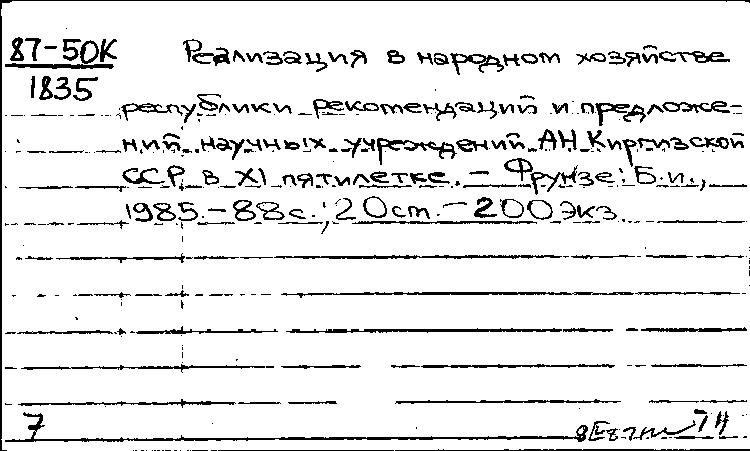 87-50К Реализация в народном хозяйстве
1835
республики рекомендаций и предложе-
ний научных учреждений АН Киргизской
ССР в XI пятилетке. – Фрунзе: Б.и.,
1985. – 88 с.; 20 cm. – 200 экз.
7